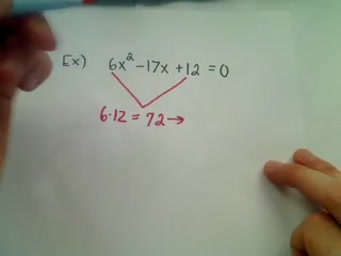 Ex) 6x² -17x +12 = 0
6·12 = 72→